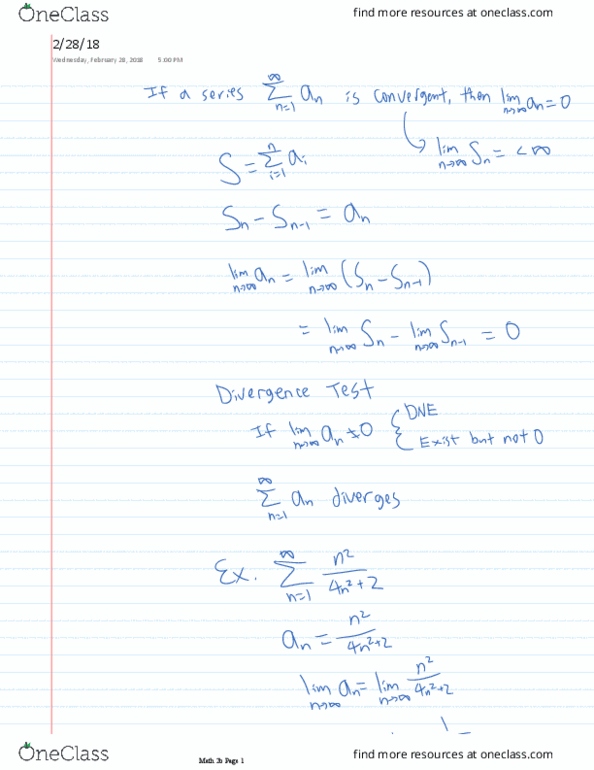 OneClass find more resources at oneclass.com
2/28/18
Wednesday, February 28, 2018 5:00 PM
If a series ∑_{n=1}^{∞} a_n is convergent, then lim_{n→∞} a_n = 0
lim_{n→∞} S_n = < ∞
S = ∑_{i=1}^{n} a_i
S_n - S_{n-1} = a_n
lim_{n→∞} a_n = lim_{n→∞} (S_n - S_{n-1})
= lim_{n→∞} S_n - lim_{n→∞} S_{n-1} = 0
Divergence Test
If lim_{n→∞} a_n ≠ 0 { DNE
Exist but not 0
∑_{n=1}^{∞} a_n diverges
Ex. ∑_{n=1}^{∞} n²/(4n²+2)
a_n = n²/(4n²+2)
lim_{n→∞} a_n = lim_{n→∞} n²/(4n²+2)
OneClass Math 3b Page 1 find more resources at oneclass.com